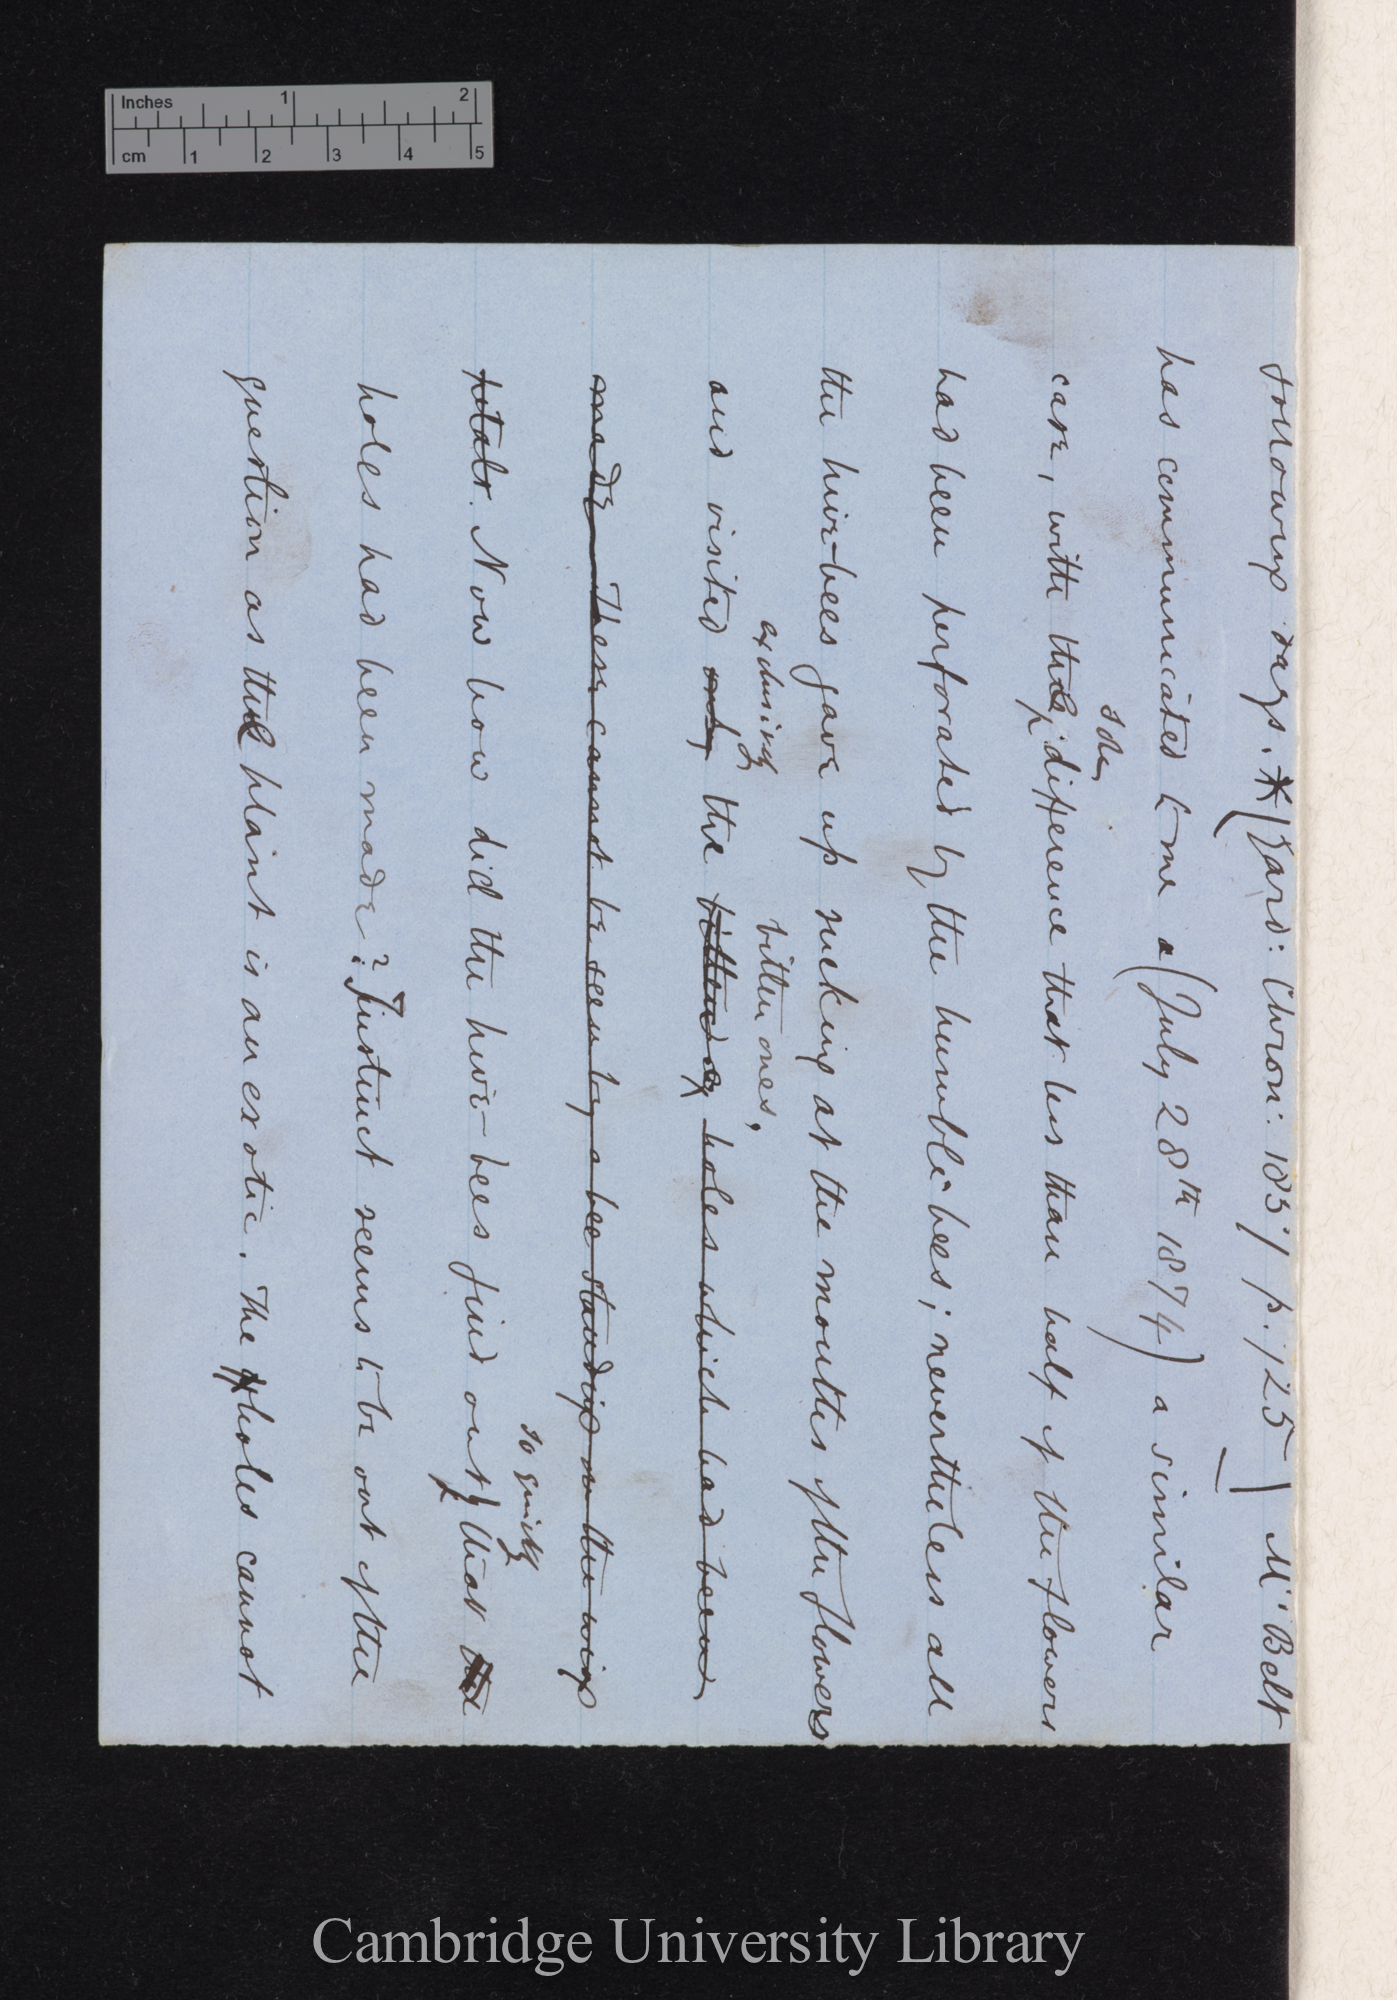 Inches 1 2
cm 1 2 3 4 5
following days. (Gard: Chron: 1857 p. 725) Mr Belt
has communicated to me a (July 28th 1874) a similar
sole
case, with the difference that less than half of the flowers
had been perforated by the humble-bees; nevertheless all
the hive-bees gave up sucking at the mouths of the flowers
exclusively bitten ones,
and visited only the holes which had been
made These cannot be seen by a bee standing on the wing
petals. Now how did the hive-bees find out that
so quickly
holes had been made? Instinct seems to be out of the
question as the plant is an exotic. The holes cannot
Cambridge University Library